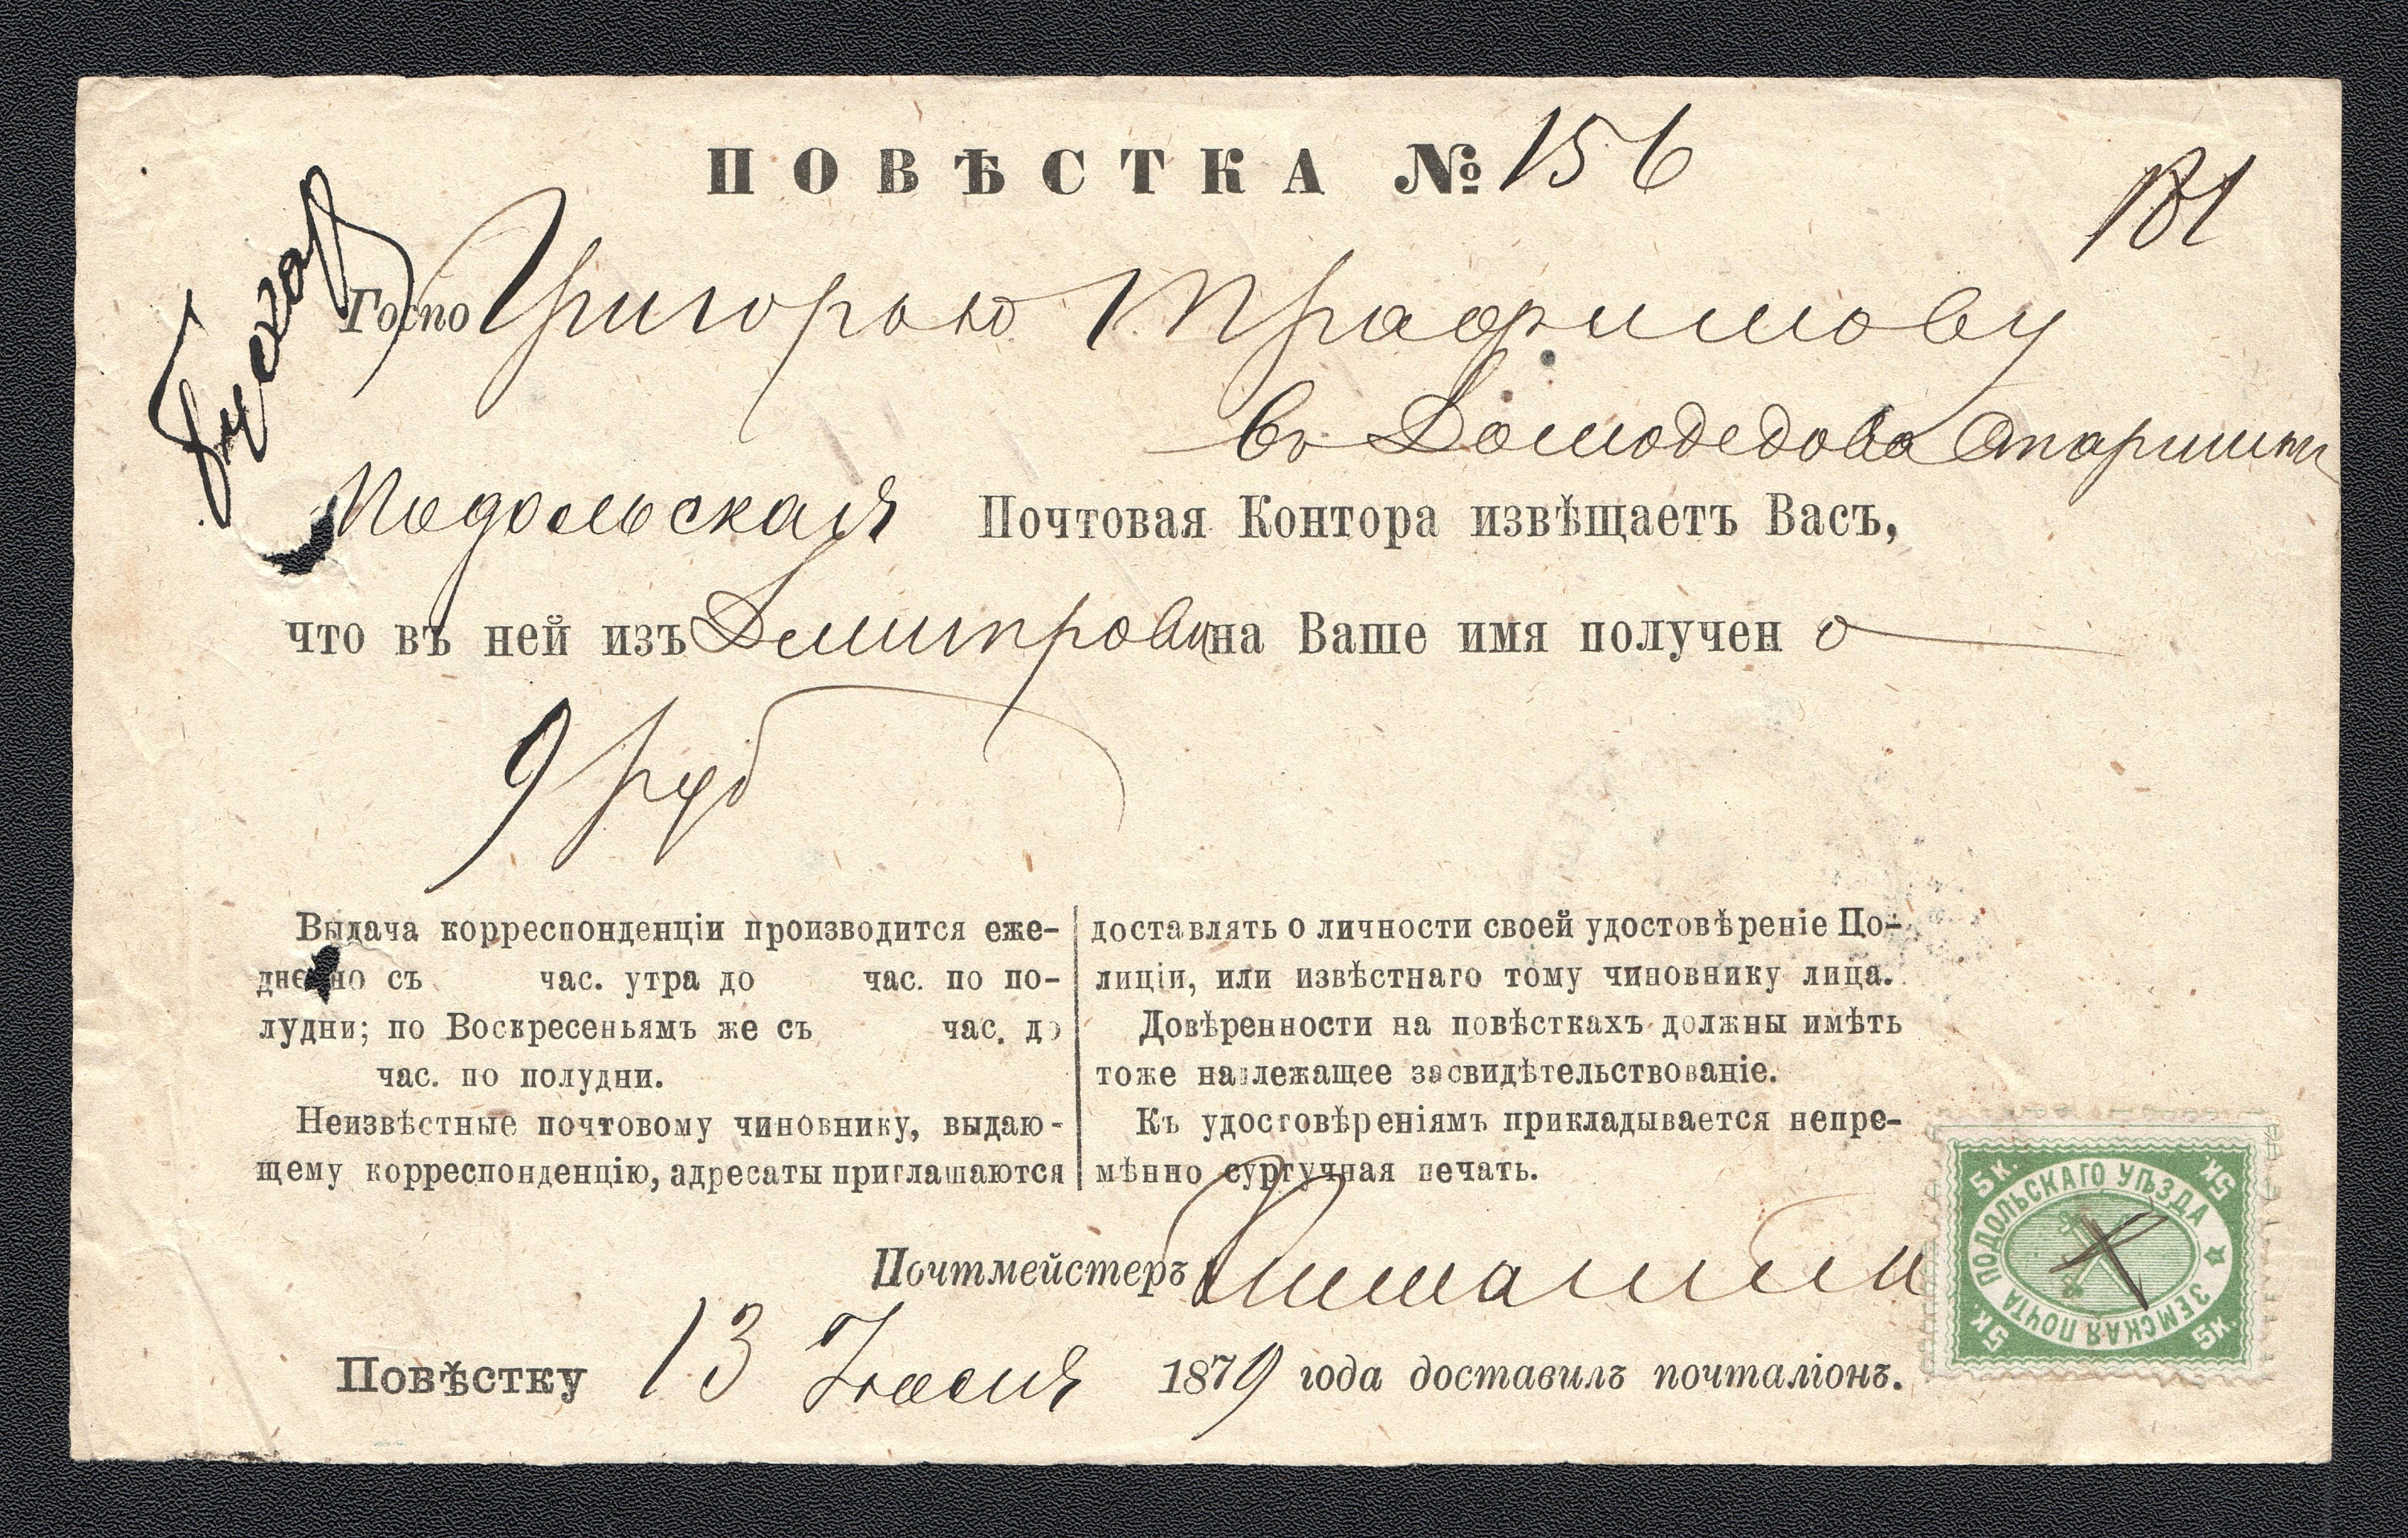 ПОВѢСТКА № 156
181
Госпо Григорью Трафимову
въ Домодедова Старшины
Подольская Почтовая Контора извѣщаетъ Васъ,
что въ ней изъ Дмитрова на Ваше имя получен о
9 руб
Выдача корреспонденціи производится еже-
дневно съ час. утра до час. по по-
лудни; по Воскресеньямъ же съ час. до
час. по полудни.
Неизвѣстные почтовому чиновнику, выдаю-
щему корреспонденцію, адресаты приглашаются
доставлять о личности своей удостовѣреніе По-
лиціи, или извѣстнаго тому чиновнику лица.
Довѣренности на повѣсткахъ должны имѣть
тоже надлежащее засвидѣтельствованіе.
Къ удостовѣреніямъ прикладывается непре-
мѣнно сургучная печать.
Почтмейстеръ
Повѣстку 13 Іюня 1879 года доставилъ почталіонъ.
5К. 5К.
ПОДОЛЬСКАГО УѢЗДА
ЗЕМСКАЯ ПОЧТА
5К. 5К.